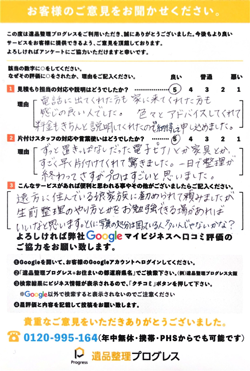 お客様のご意見をお聞かせください。
この度は遺品整理プログレスをご利用いただき、誠にありがとうございました。今後もより良い
サービスをお客様に提供できるよう、ご意見を頂戴しております。
よろしければアンケートにご協力いただけますと幸いです。
該当の数字に○をしてください。
なぜその評価に○をされたか、理由をご記入ください。
良い 普通 悪い
1 見積もり担当の対応や説明はどうでしたか?
5 4 3 2 1
理由
電話に出てくれた方も家に来てくれた方も
感じの良い人でした。色々とアドバイスしてくれて
料金もきちんと説明してくれたので
申し込めました。
2 片付けスタッフの対応や言葉使いはどうでしたか?
5 4 3 2 1
理由
ずっと置きっぱなしだった電子ピアノや家具とか、
すごく早く片付けてくれて驚きました。一日で整理が
終わってさすがプロはすごいと思いました。
3 こんなサービスがあれば便利と思われる事やその他がございましたらご記入ください。
遠方に住んでいる祈家族に勧められて頼みましたが
生前整理のやり方とかをお勉強できる場があれば
いいなと思います。
よろしければ弊社Googleマイビジネスへ口コミ評価の
ご協力をお願い致します。
❶Googleを開いて、お客様のGoogleアカウントへログインしてください。
❷「遺品整理プログレス+お住まいの都道府県名」でご検索下さい。
❸検索結果にビジネス情報が表示されるので、「クチコミ」ボタンを押して下さい。
※Google以外で検索すると表示されないのでご注意ください
❹星評価と内容を記載して投稿をお願い致します。
貴重なご意見をいただきありがとうございました。
0120-995-164(年中無休・携帯・PHSからでも可能です)
Progress
遺品整理プログレス